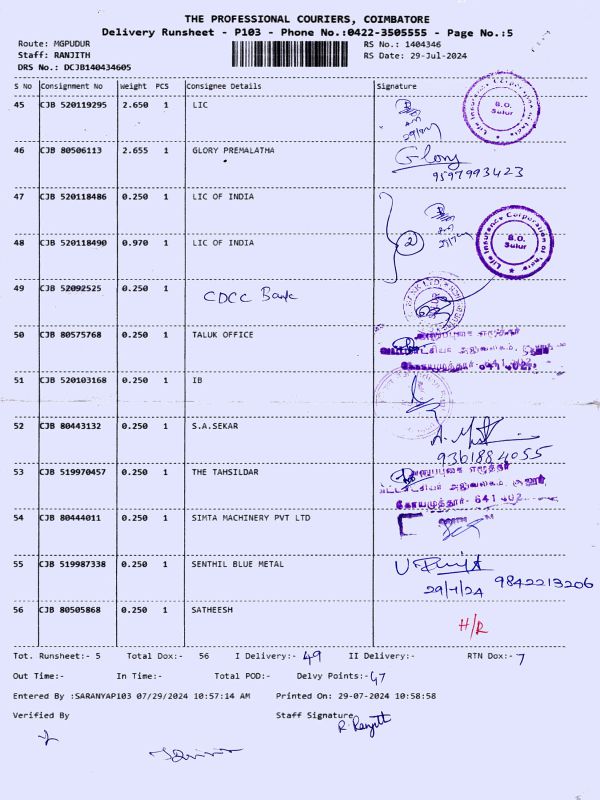 THE PROFESSIONAL COURIERS, COIMBATORE
Delivery Runsheet - P103 - Phone No.:0422-3505555 - Page No.:5
Route: MGPUDUR
RS No.: 1404346
Staff: RANJITH
RS Date: 29-Jul-2024
DRS No.: DCJB140434605
S No Consignment No Weight PCS Consignee Details Signature
45 CJB 520119295 2.650 1 LIC
Life Insurance Corporation of India B.O. Sulur
46 CJB 80506113 2.655 1 GLORY PREMALATHA Glory
9597993423
47 CJB 520118486 0.250 1 LIC OF INDIA
48 CJB 520118490 0.970 1 LIC OF INDIA 2
Life Insurance Corporation of India B.O. Sulur
49 CJB 52092525 0.250 1 CDCC Bank
50 CJB 80575768 0.250 1 TALUK OFFICE
51 CJB 520103168 0.250 1 IB
52 CJB 80443132 0.250 1 S.A.SEKAR
9361884055
53 CJB 519970457 0.250 1 THE TAHSILDAR
கோயமுத்தூர் - 641 402
54 CJB 80444011 0.250 1 SIMTA MACHINERY PVT LTD
55 CJB 519987338 0.250 1 SENTHIL BLUE METAL
9842213206
56 CJB 80505868 0.250 1 SATHEESH H/R
Tot. Runsheet:- 5 Total Dox:- 56 I Delivery:- 49 II Delivery:- RTN Dox:- 7
Out Time:- In Time:- Total POD:- Delvy Points:- 47
Entered By :SARANYAP103 07/29/2024 10:57:14 AM Printed On: 29-07-2024 10:58:58
Verified By Staff Signature
R. Ranjith